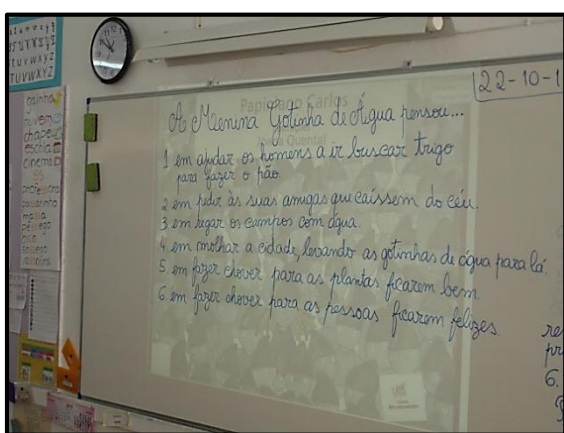 22-10-1
Papiniano Carlos
Joana Quental
A Menina Gotinha de Água pensou...
1 em ajudar os homens a ir buscar trigo
para fazer o pão.
2 em pedir às suas amigas que caíssem do céu.
3 em regar os campos com água.
4. em molhar a cidade, levando as gotinhas de água para lá.
5. em fazer chover para as plantas ficarem bem
6. em fazer chover para as pessoas ficarem felizes.
6.
TUVWXYZ
nuvem
chapéu
escola
cinema
ss
professora
passarinho
massa
pêssego
osso
sossego